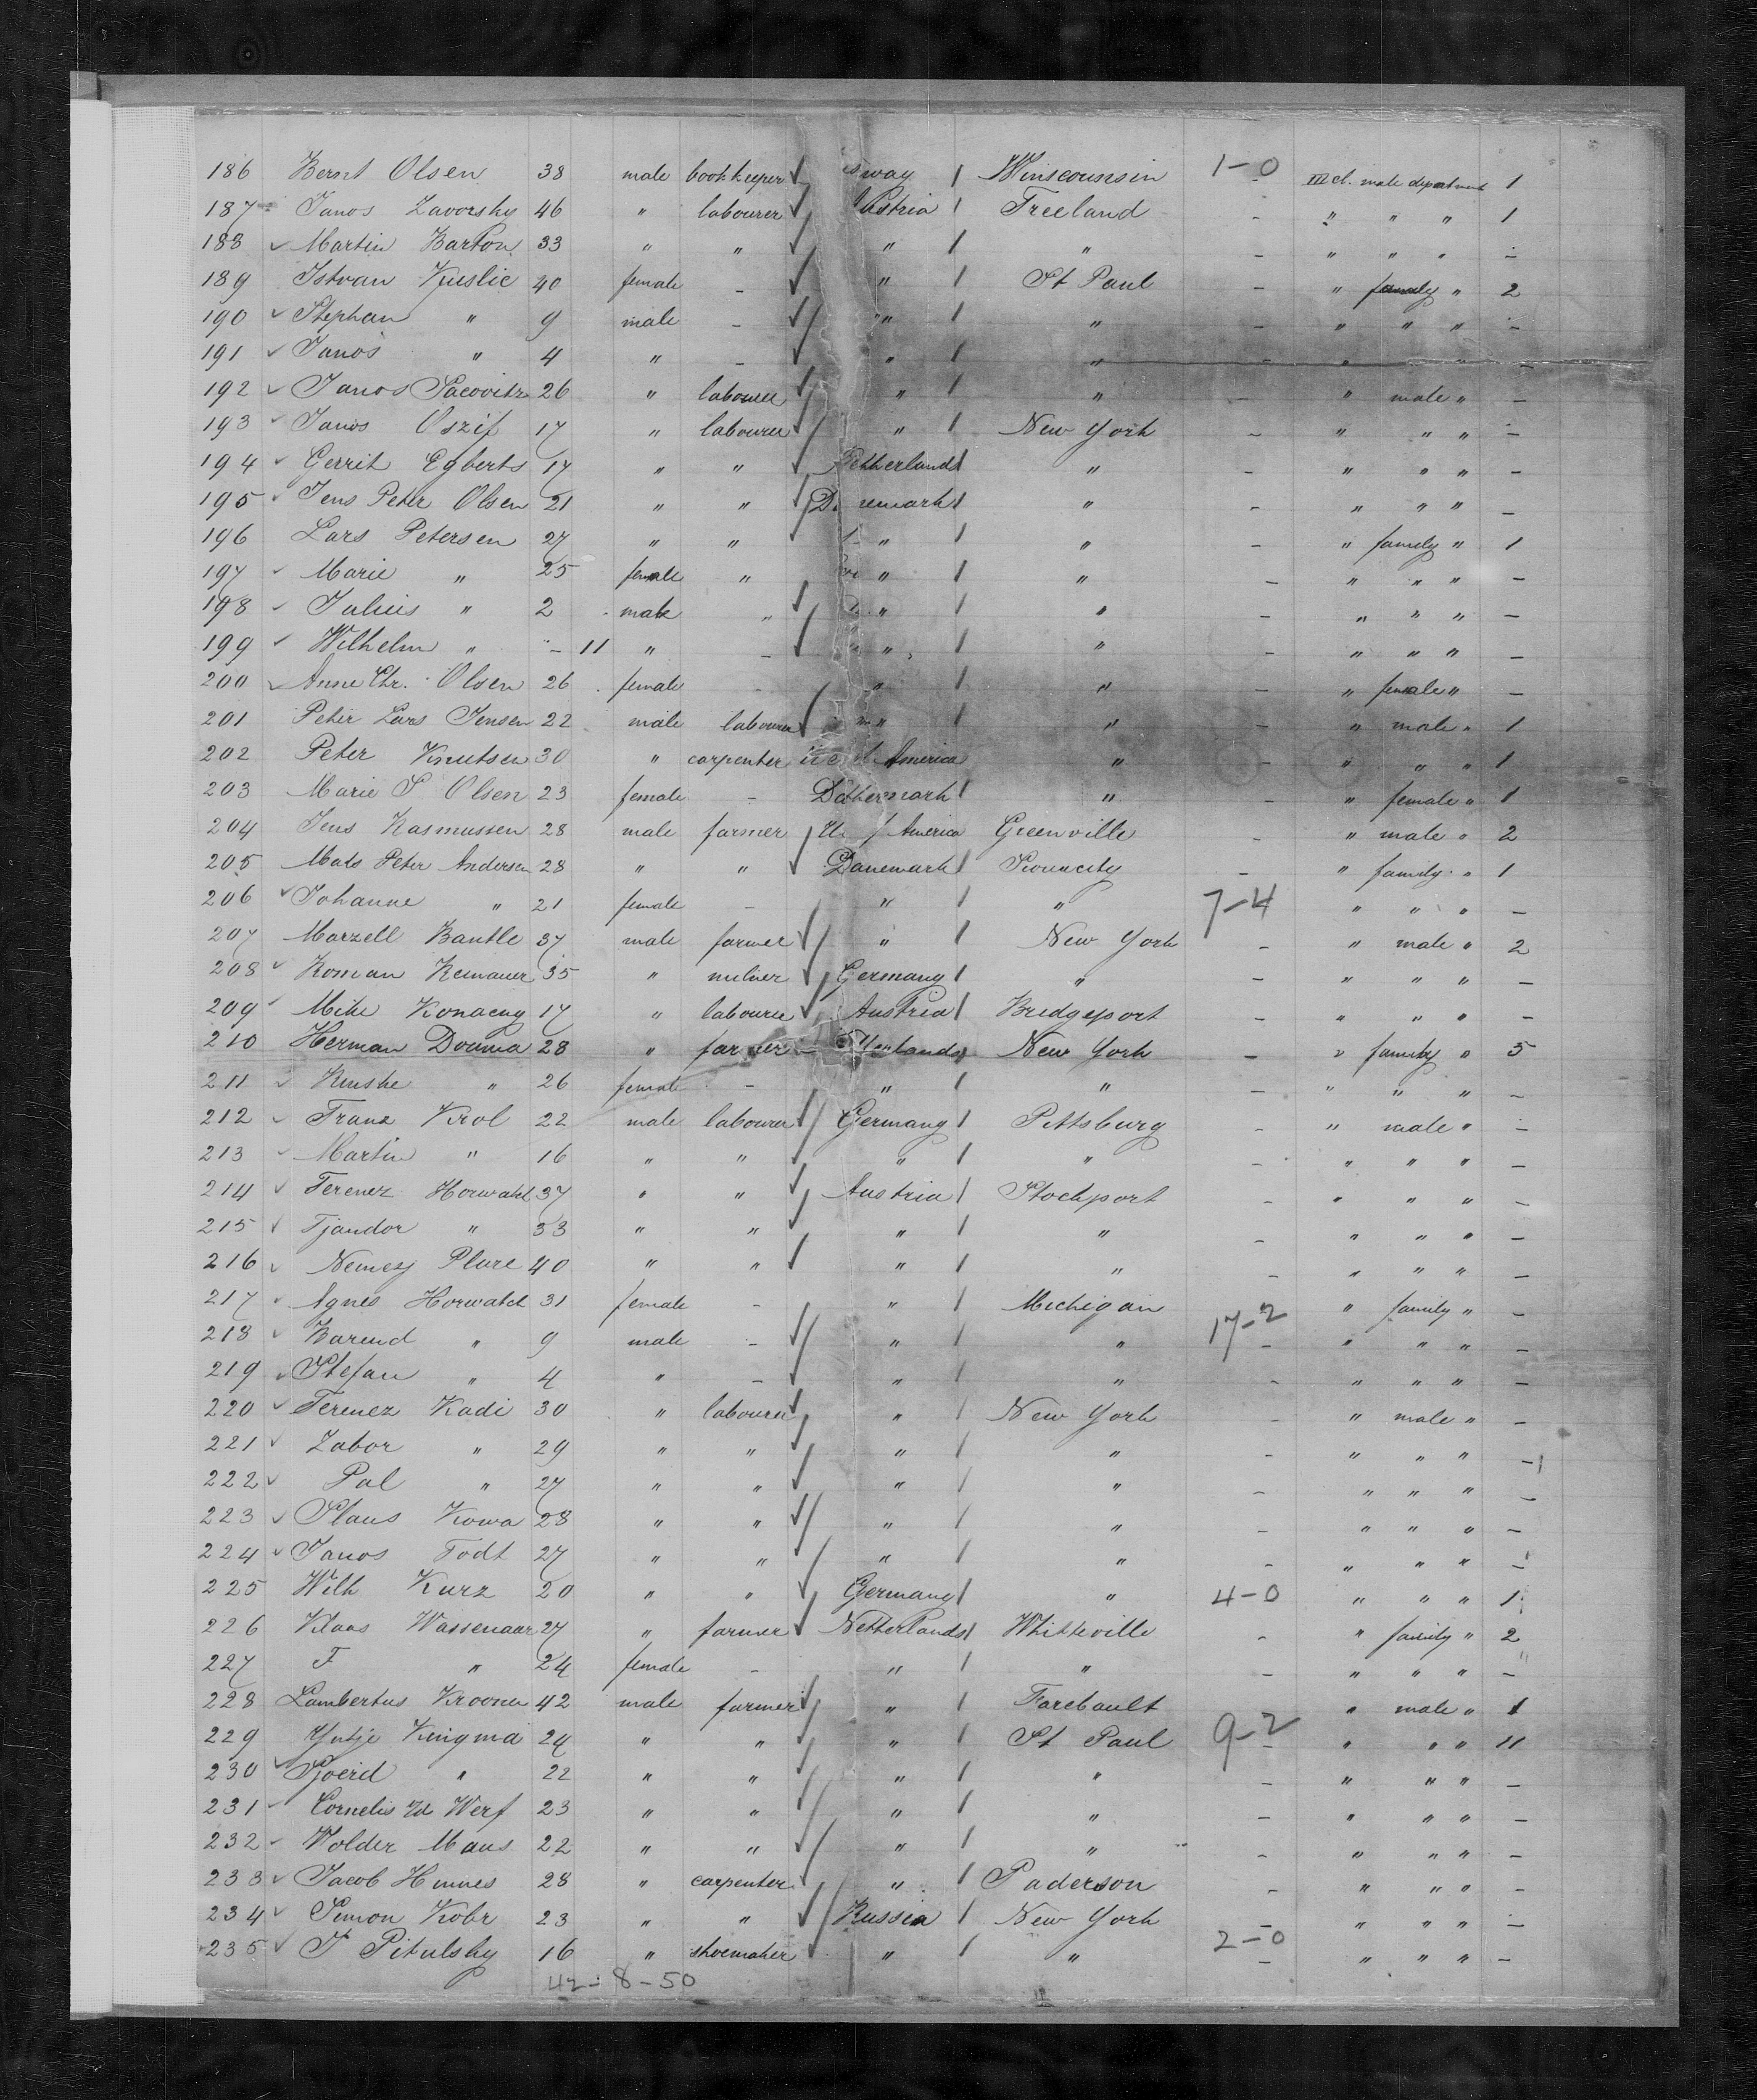 186 Bernt Olsen 38 male bookkeeper way Winscounsin 1-0 III cl. male department 1
187 Janos Zavorsky 46 " labourer Austria Freeland - " " " 1
188 Martin Barton 33 " " " " - " " " -
189 Istvan Kuslic 40 female - " St Paul - " family " 2
190 Stephan " 9 male - " " - " " " -
191 Janos " 4 " - " " - " " -
192 Janos Pacovitz 26 " labourer " " - " male " -
193 Janos Oszif 17 " labourer " New York - " " " -
194 Gerrit Egberts 17 " " Netherlands " - " " " -
195 Jens Peter Olsen 21 " " Denemark " - " " " -
196 Lars Petersen 27 " " " " - " family " 1
197 Marie " 25 female " " " - " " " -
198 Julius " 2 male " " " - " " " -
199 Wilhelm " - 11 " - " " - " " " -
200 Anne Chr. Olsen 26 female - " " - " female " -
201 Peter Lars Jensen 22 male labourer " " - " male " 1
202 Peter Knutsen 30 " carpenter America " - " " " 1
203 Marie S Olsen 23 female - " - " female " 1
204 Jens Rasmussen 28 male farmer America Greenville - " male " 2
205 Mats Peter Andersen 28 " " Danemark Siouxcity - " family " 1
206 Johanne " 21 female - " " 7-4 " " " -
207 Marzell Bantle 37 male farmer " New York - " male " 2
208 Roman Remauer 35 " Germany " - " " " -
209 Mike Konacny 17 " labourer Austria Bridgeport - " " " -
210 Herman Douma 28 " farmer New York - " family " 5
211 Renske " 26 female - " " - " " " -
212 Franz Krol 22 male labourer Germany Pittsburg - " male " -
213 Martin " 16 " " " " - " " " -
214 Ferencz Horwaht 37 " " Austria Stockport - " " " -
215 Tjandor " 33 " " " " - " " " -
216 Nemezj Plure 40 " " " " - " " " -
217 Agnes Horwatch 31 female - " Michigan " family " -
218 Barend " 9 male - " " 17-2 - " " " -
219 Stefan " 4 " - " " - " " " -
220 Ferencz Kadi 30 " labourer " New York - " male " -
221 Zabor " 29 " " " " - " " " -1
222 Pal " 27 " " " " - " " " -
223 Plaus Kowa 28 " " " " - " " " -
224 Janos Todt 27 " " " " - " " " -
225 Wilh Kurz 20 " " Germany " 4-0 " " " 1
226 Klaas Wassenaar 27 " farmer Netherlands Whitteville - " family " 2
227 F " 24 female - " " - " " " -
228 Lambertus Kroonen 42 male farmer " Farebault " male " 1
229 Yntje Kingma 24 " " " St Paul 9-2 - " " " 11
230 Sjoerd " 22 " " " " - " " " -
231 Cornelis v/d Werf 23 " " " " - " " " -
232 Wolder Maus 22 " " " " - " " " -
233 Jacob Hinnes 28 " carpenter " Paderson - " " " -
234 Simon Kobr 23 " " Russia New York - " " " -
235 J Pitulsky 16 " shoemaker " " 2-0 - " " " -
42-8-50